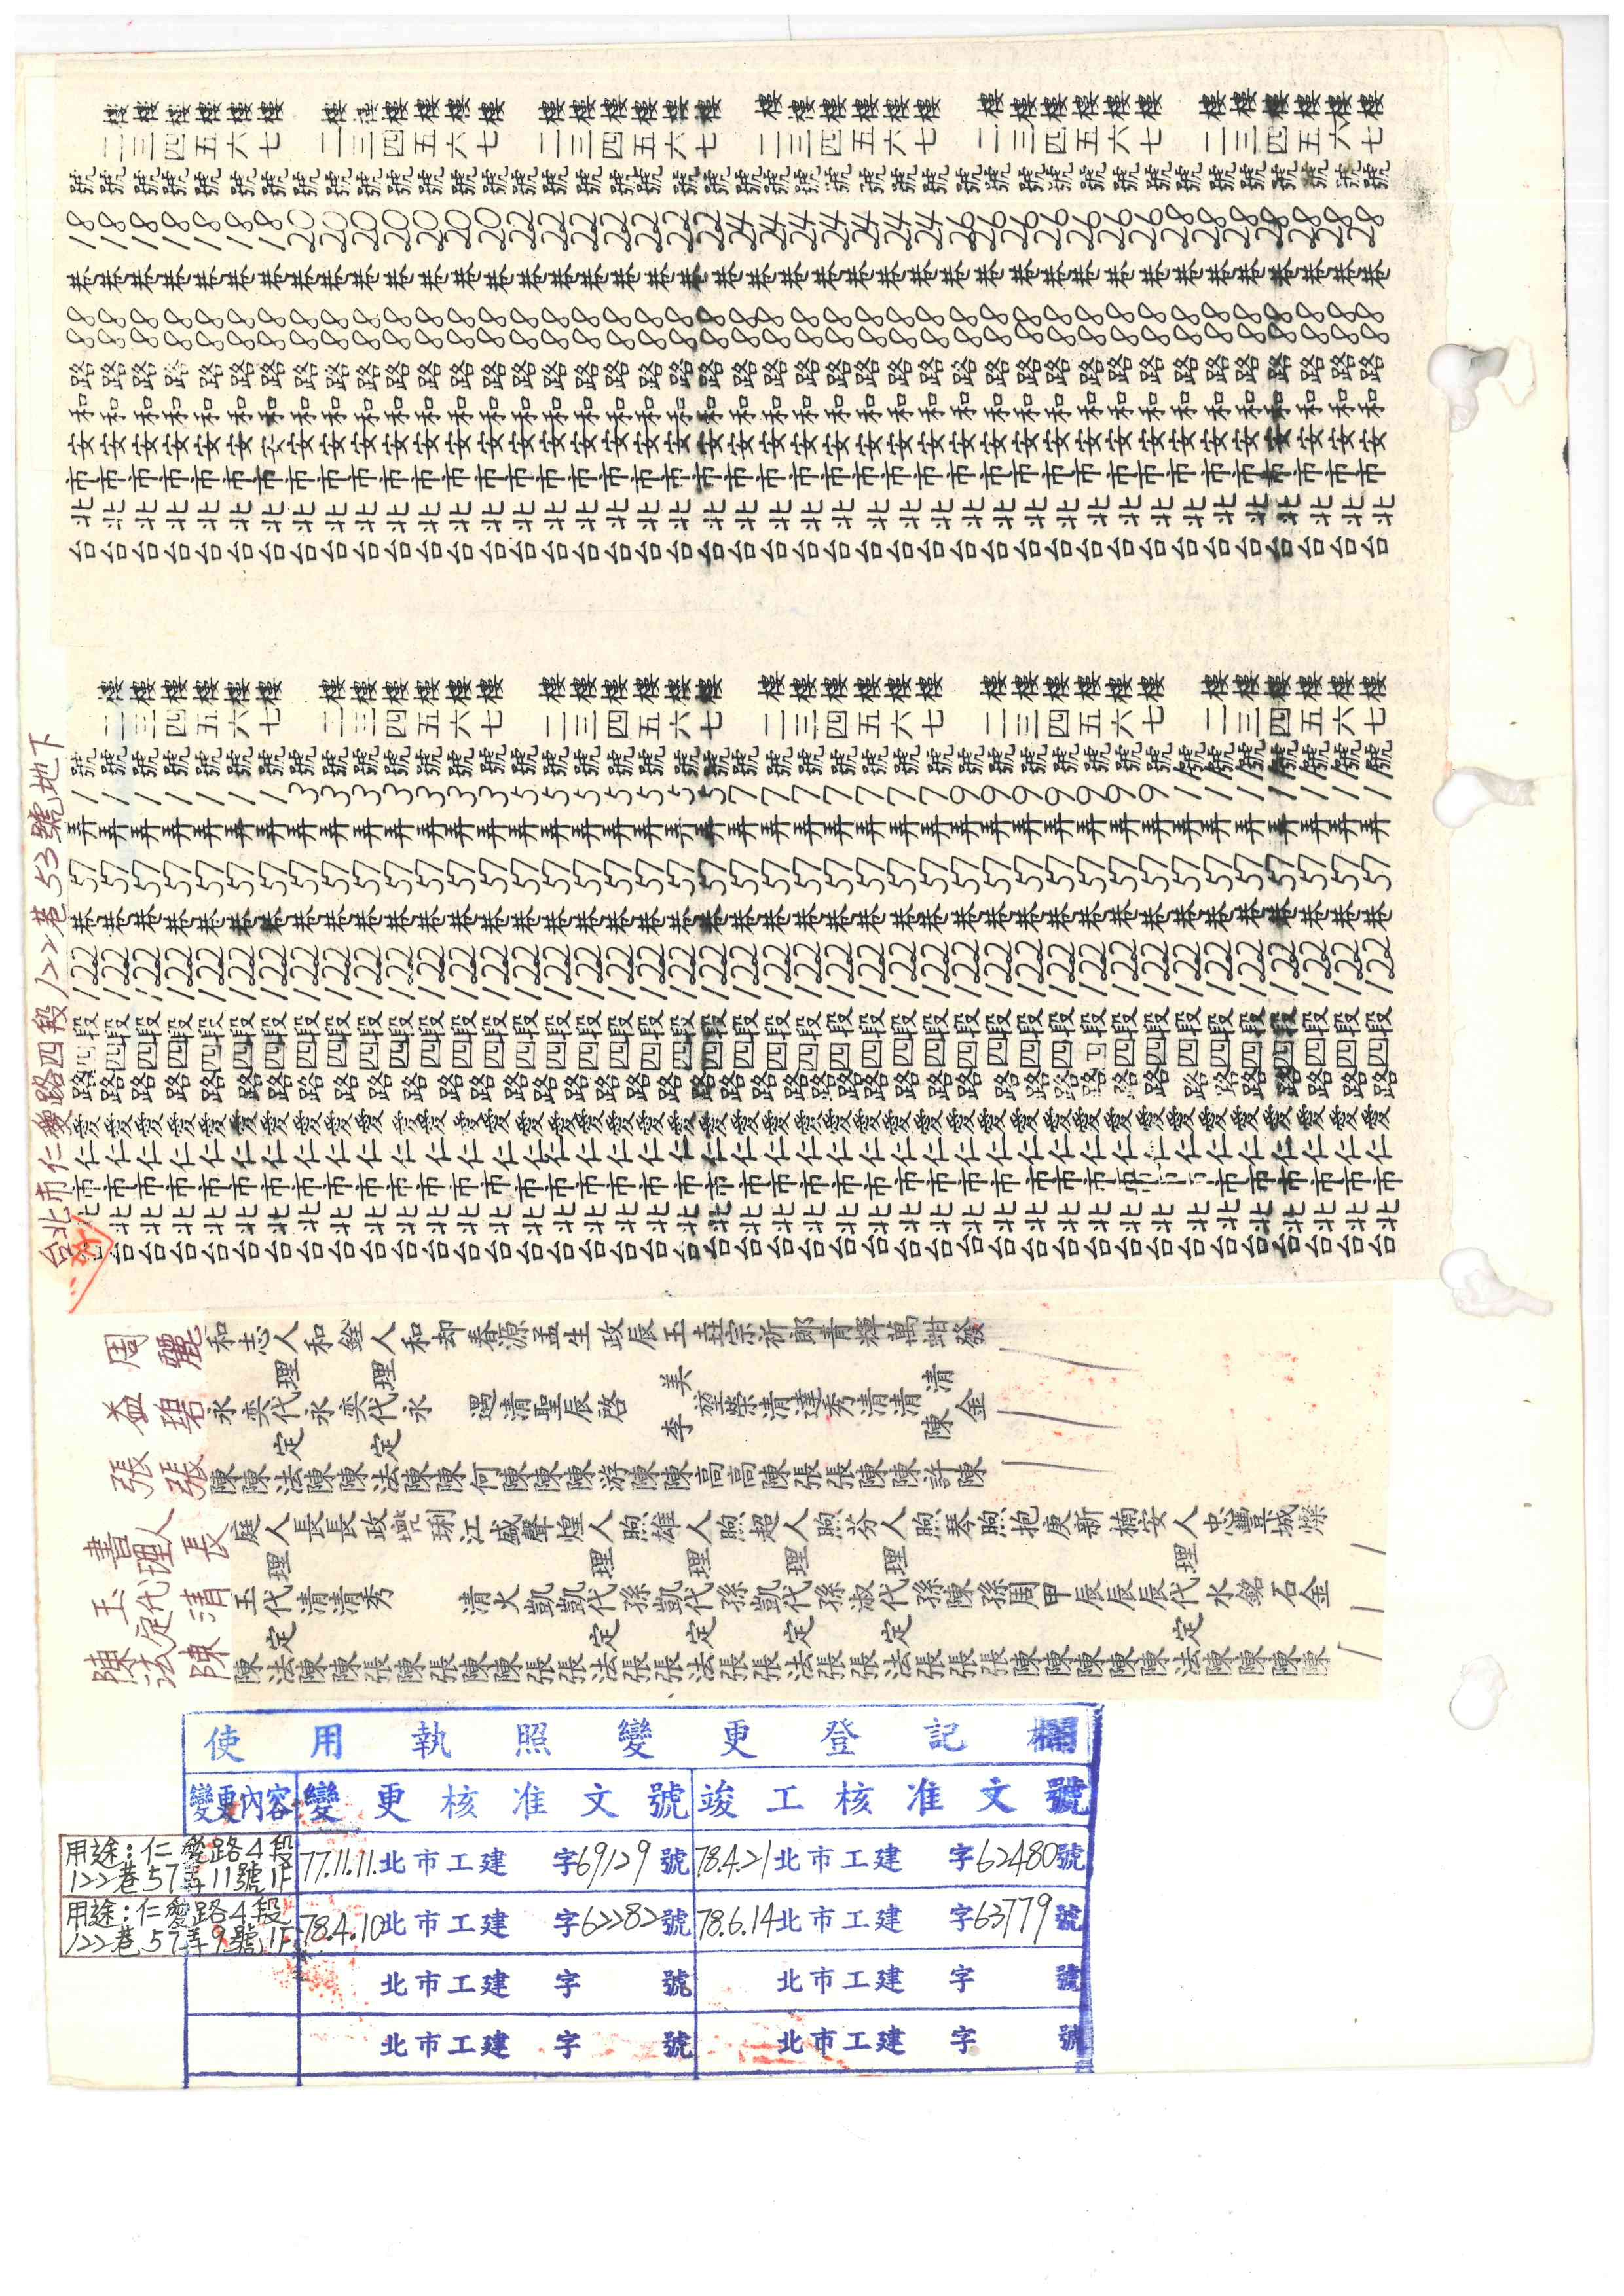 台北市仁愛路四段122巷53號地下
台北市安和路88巷18號
台北市安和路88巷18號二樓
台北市安和路88巷18號三樓
台北市安和路88巷18號四樓
台北市安和路88巷18號五樓
台北市安和路88巷18號六樓
台北市安和路88巷18號七樓
台北市安和路88巷20號
台北市安和路88巷20號二樓
台北市安和路88巷20號三樓
台北市安和路88巷20號四樓
台北市安和路88巷20號五樓
台北市安和路88巷20號六樓
台北市安和路88巷20號七樓
台北市安和路88巷22號
台北市安和路88巷22號二樓
台北市安和路88巷22號三樓
台北市安和路88巷22號四樓
台北市安和路88巷22號五樓
台北市安和路88巷22號六樓
台北市安和路88巷22號七樓
台北市安和路88巷24號
台北市安和路88巷24號二樓
台北市安和路88巷24號三樓
台北市安和路88巷24號四樓
台北市安和路88巷24號五樓
台北市安和路88巷24號六樓
台北市安和路88巷24號七樓
台北市安和路88巷26號
台北市安和路88巷26號二樓
台北市安和路88巷26號三樓
台北市安和路88巷26號四樓
台北市安和路88巷26號五樓
台北市安和路88巷26號六樓
台北市安和路88巷26號七樓
台北市安和路88巷28號
台北市安和路88巷28號二樓
台北市安和路88巷28號三樓
台北市安和路88巷28號四樓
台北市安和路88巷28號五樓
台北市安和路88巷28號六樓
台北市安和路88巷28號七樓
台北市仁愛路四段122巷57弄1號
台北市仁愛路四段122巷57弄1號二樓
台北市仁愛路四段122巷57弄1號三樓
台北市仁愛路四段122巷57弄1號四樓
台北市仁愛路四段122巷57弄1號五樓
台北市仁愛路四段122巷57弄1號六樓
台北市仁愛路四段122巷57弄1號七樓
台北市仁愛路四段122巷57弄3號
台北市仁愛路四段122巷57弄3號二樓
台北市仁愛路四段122巷57弄3號三樓
台北市仁愛路四段122巷57弄3號四樓
台北市仁愛路四段122巷57弄3號五樓
台北市仁愛路四段122巷57弄3號六樓
台北市仁愛路四段122巷57弄3號七樓
台北市仁愛路四段122巷57弄5號
台北市仁愛路四段122巷57弄5號二樓
台北市仁愛路四段122巷57弄5號三樓
台北市仁愛路四段122巷57弄5號四樓
台北市仁愛路四段122巷57弄5號五樓
台北市仁愛路四段122巷57弄5號六樓
台北市仁愛路四段122巷57弄5號七樓
台北市仁愛路四段122巷57弄7號
台北市仁愛路四段122巷57弄7號二樓
台北市仁愛路四段122巷57弄7號三樓
台北市仁愛路四段122巷57弄7號四樓
台北市仁愛路四段122巷57弄7號五樓
台北市仁愛路四段122巷57弄7號六樓
台北市仁愛路四段122巷57弄7號七樓
台北市仁愛路四段122巷57弄9號
台北市仁愛路四段122巷57弄9號二樓
台北市仁愛路四段122巷57弄9號三樓
台北市仁愛路四段122巷57弄9號四樓
台北市仁愛路四段122巷57弄9號五樓
台北市仁愛路四段122巷57弄9號六樓
台北市仁愛路四段122巷57弄9號七樓
台北市仁愛路四段122巷57弄11號
台北市仁愛路四段122巷57弄11號二樓
台北市仁愛路四段122巷57弄11號三樓
台北市仁愛路四段122巷57弄11號四樓
台北市仁愛路四段122巷57弄11號五樓
台北市仁愛路四段122巷57弄11號六樓
台北市仁愛路四段122巷57弄11號七樓
張益周
張碧麗
陳永和
陳奕志
法定代理人
陳永和
陳奕銓
法定代理人
陳永和
陳却
何遇春
陳清源
陳聖孟
陳辰生
游啓政
陳辰
陳李美玉
高榮宗
陳清祈
張達郎
張秀青
陳清輝
陳清萬
許陳清甜
陳金發
陳玉書
法定代理人
陳清長
陳玉庭
法定代理人
陳清長
陳清長
張秀政
張琍
陳清江
陳火盛
張凱聲
張凱煌
法定代理人
張孫煦
張凱雄
法定代理人
張孫煦
張凱超
法定代理人
張孫煦
張淑芬
法定代理人
張孫煦
張陳琴
張孫煦
陳周抱
陳甲庚
陳辰新
陳辰楠
陳辰安
法定代理人
陳水忠
陳銘豐
陳石城
陳金燦
使用執照變更登記欄
變更內容 變更核准文號 竣工核准文號
用途：仁愛路4段122巷57弄11號1F 77.11.11.北市工建 字69129號 78.4.21北市工建 字62480號
用途：仁愛路4段122巷57弄9號1F 78.4.10北市工建 字62282號 78.6.14北市工建 字63779號
北市工建 字 號 北市工建 字 號
北市工建 字 號 北市工建 字 號